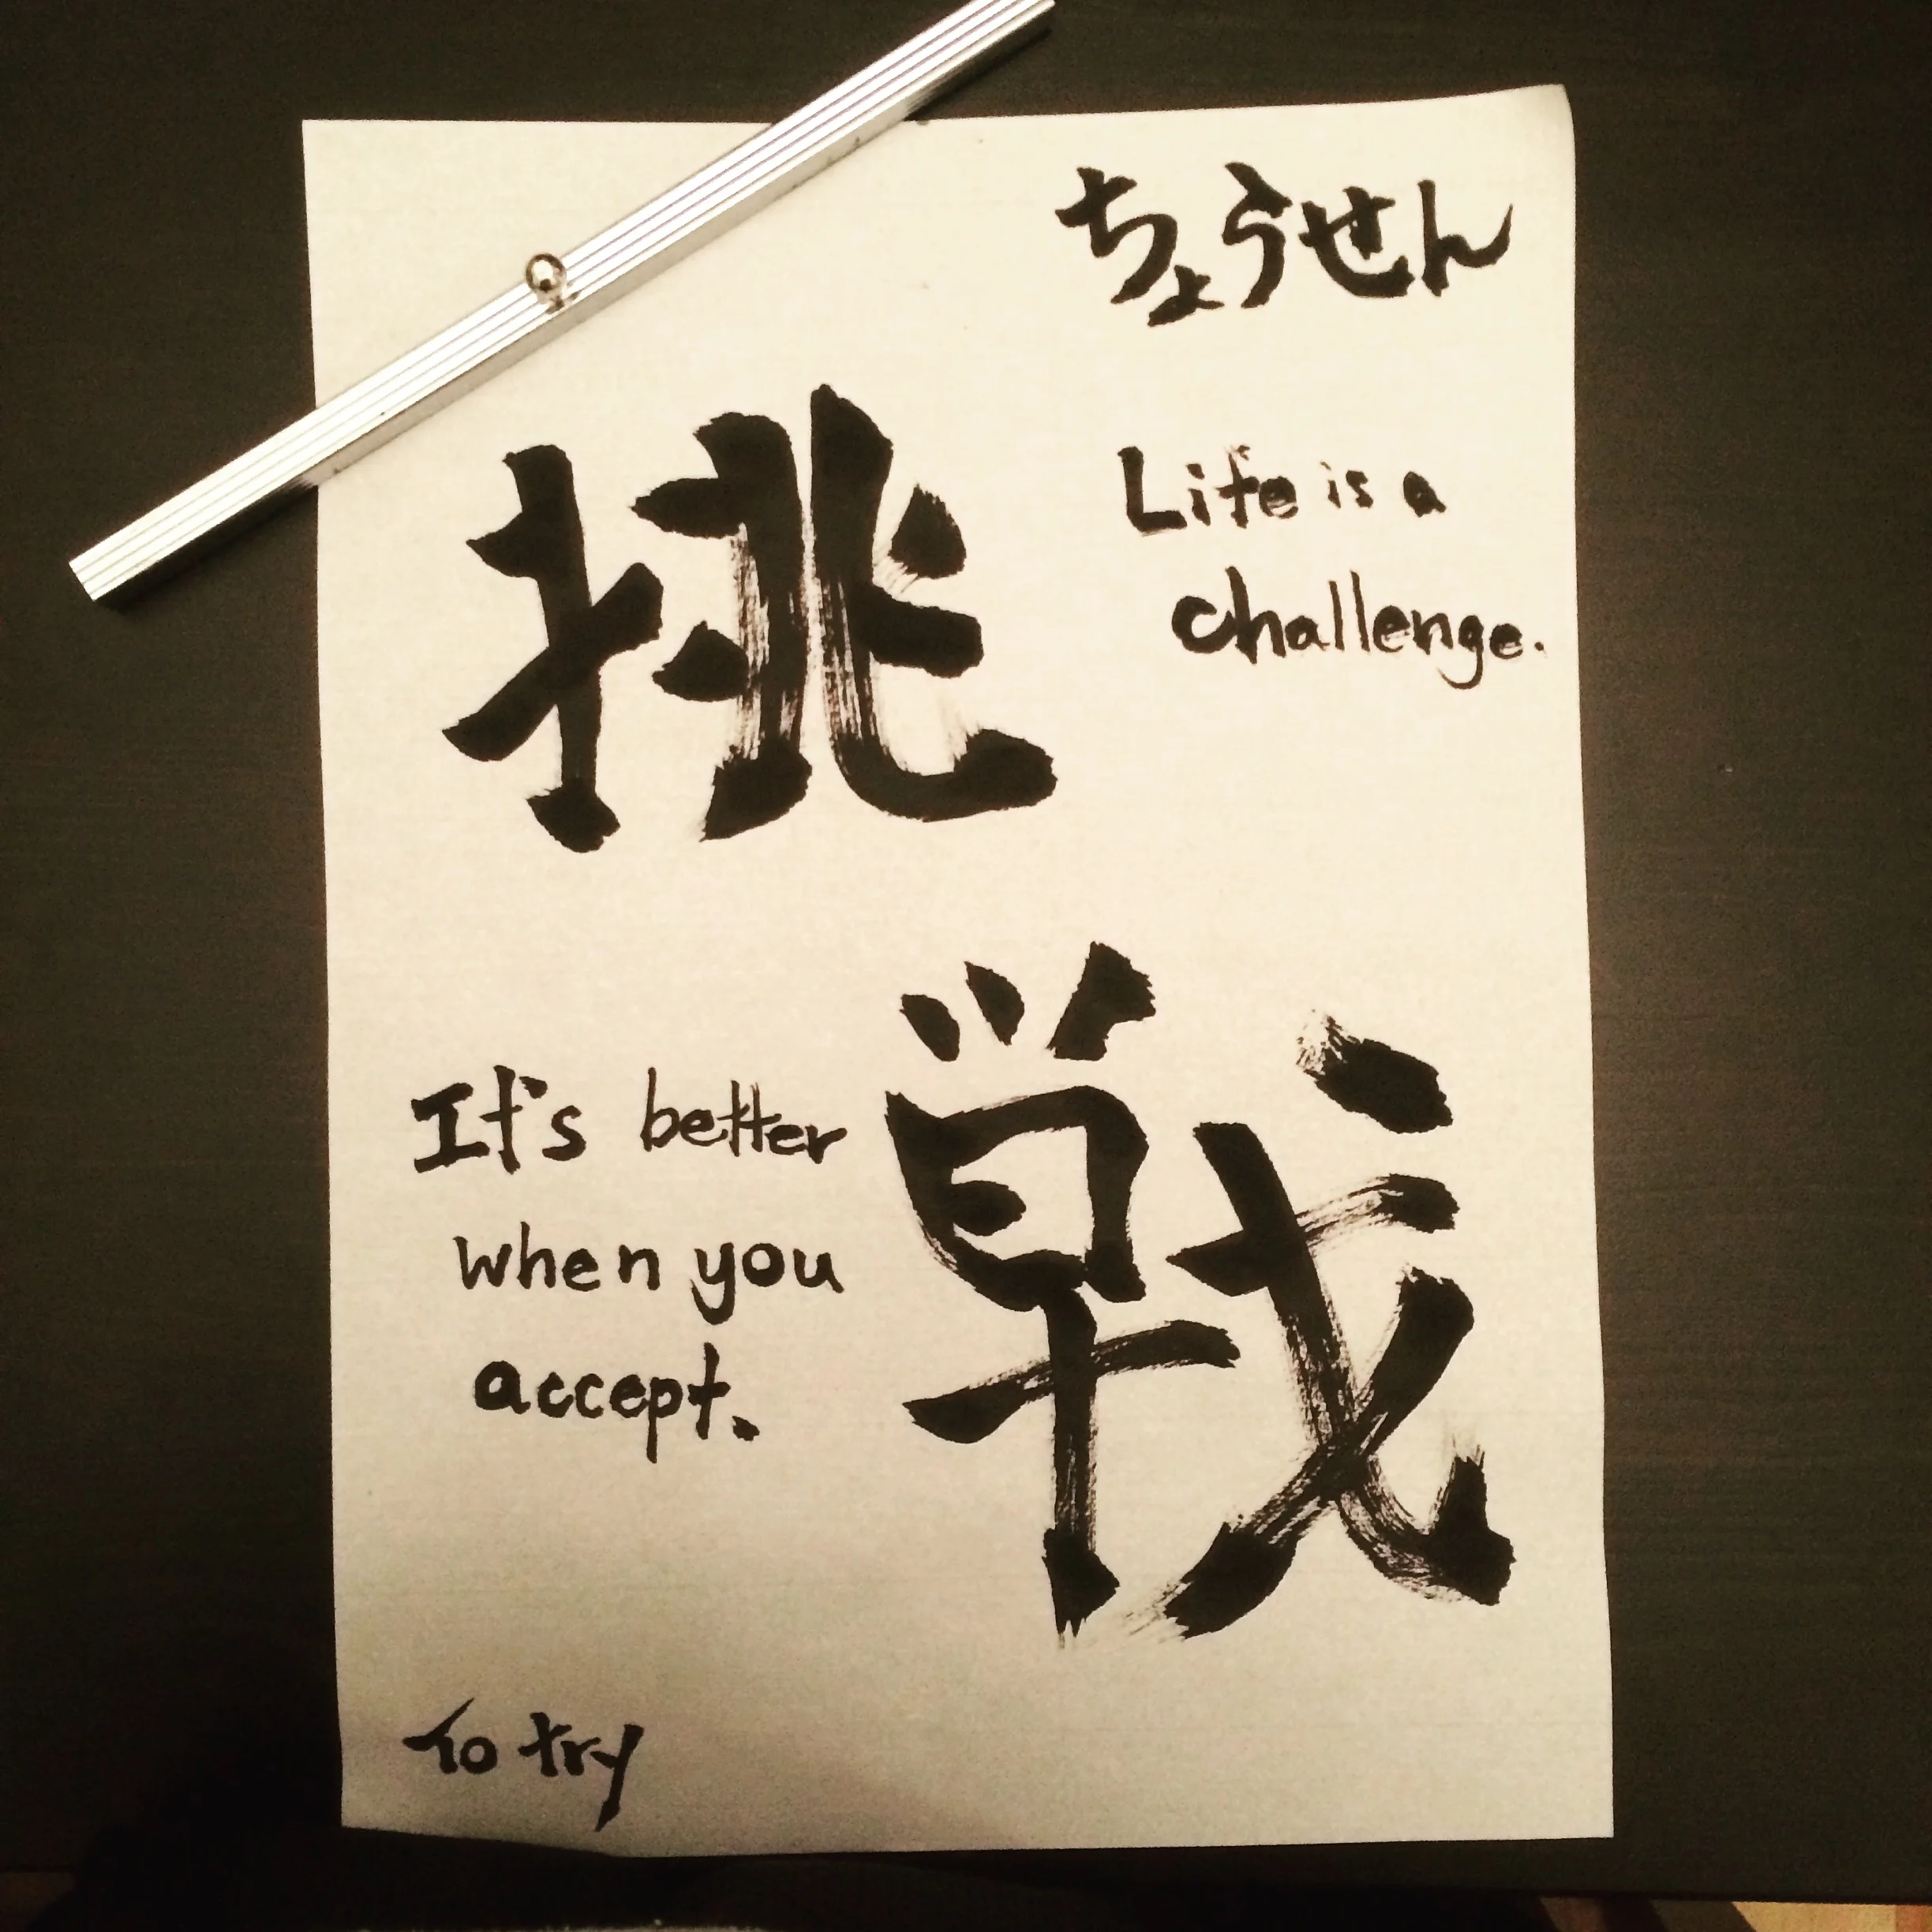 ちょうせん
挑
Life is a
challenge.
戦
It's better
when you
accept.
To try